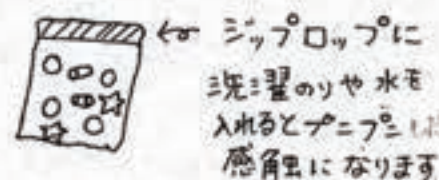 ← ジップロップに
洗濯のりや水を
入れるとプニプニした
感触になります